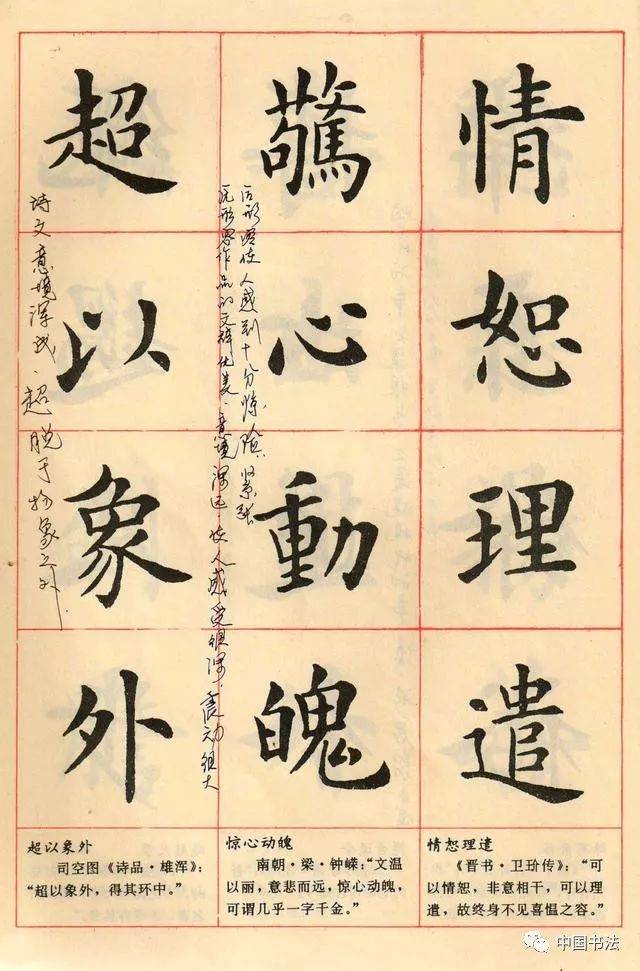 情恕理遣
驚心動魄
超以象外
后形容使人感到十分惊险、紧张
原形容作品的文辞优美、意境深远 使人感受深、震动大
诗文意境浑成、超脱于物象之外.
超以象外
司空图《诗品·雄浑》:
“超以象外，得其环中。”
惊心动魄
南朝·梁·钟嵘:“文温
以丽，意悲而远，惊心动魄，
可谓几乎一字千金。”
情恕理遣
《晋书·卫玠传》:“可
以情恕，非意相干，可以理
遣，故终身不见喜愠之容。”
中国书法